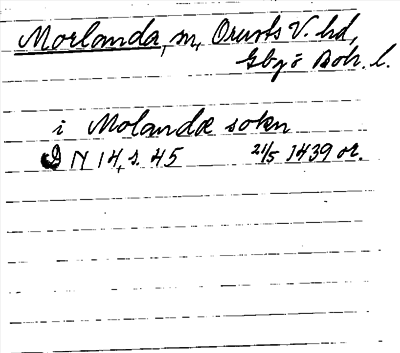 Morlanda, sn, Orusts V. hd,
Gbgs o Boh. l.
i Molandæ sokn
DN 14, s. 45 21/5 1439 or.